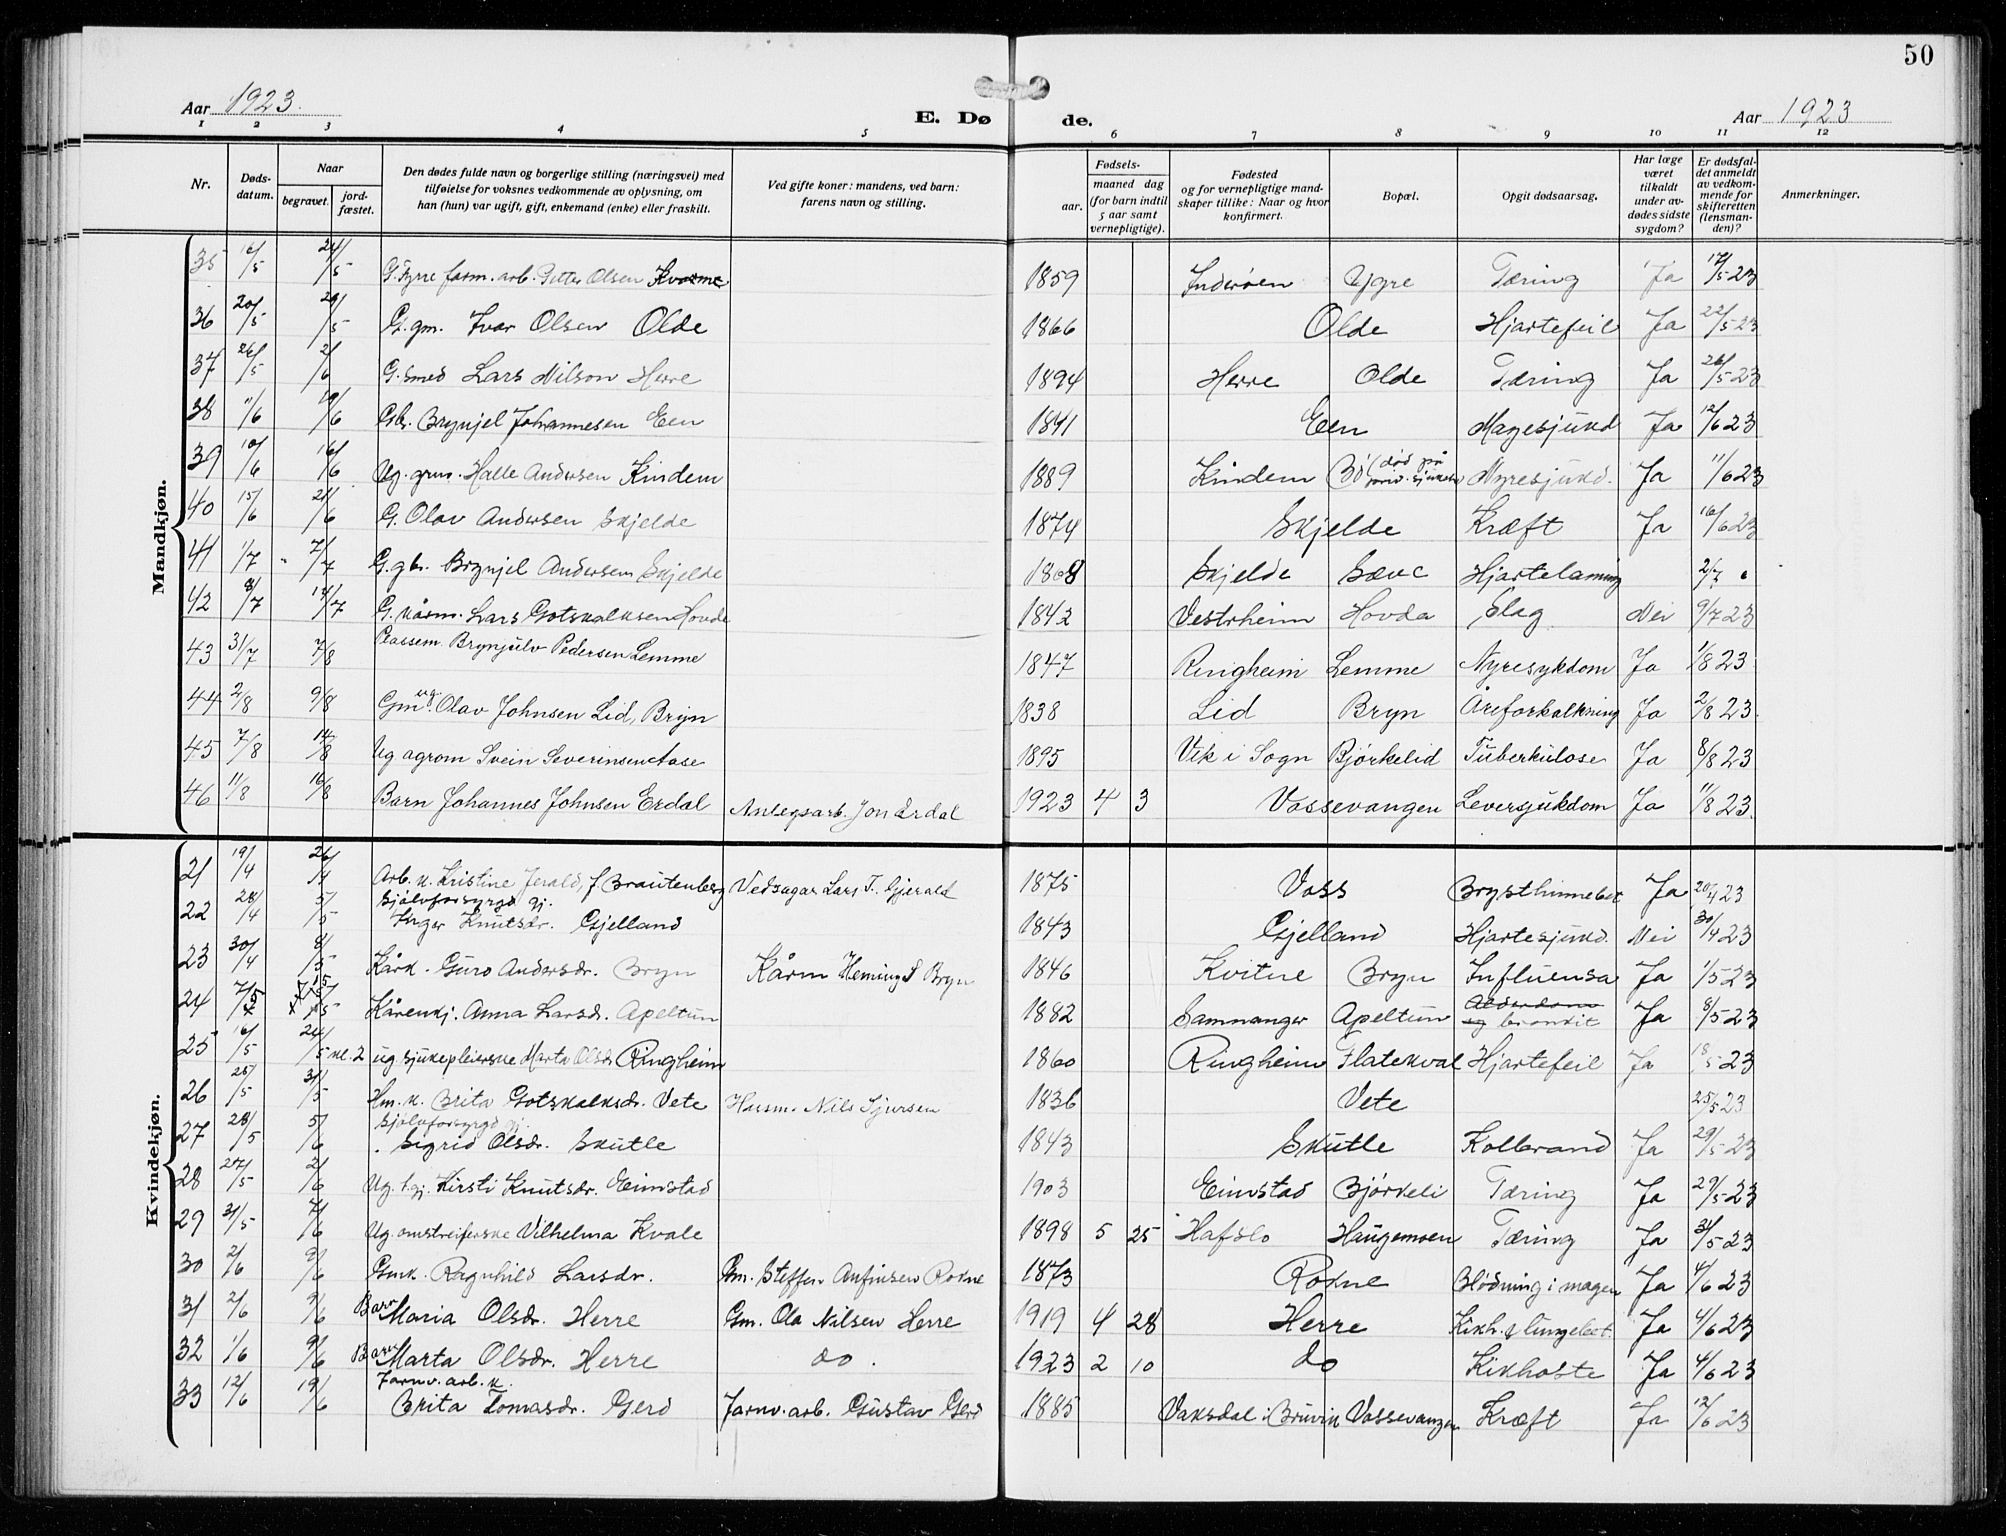 50
Aar 1923.
E. Dø de.
Aar 1923
1 2 3 4 5 6 7 8 9 10 11 12
Nr.
Døds-
datum.
Naar
begravet.
jord-
fæstet.
Den dødes fulde navn og borgerlige stilling (næringsvei) med
tilføielse for voksnes vedkommende av oplysning, om
han (hun) var ugift, gift, enkemand (enke) eller fraskilt.
Ved gifte koner: mandens, ved barn:
farens navn og stilling.
Fødsels-
aar.
maaned dag
(for barn indtil
5 aar samt
vernepligtige).
Fødested
og for vernepligtige mand-
skaper tillike: Naar og hvor
konfirmert.
Bopæl.
Opgit dødsaarsag.
Har læge
været
tilkaldt
under av-
dødes sidste
sygdom?
Er dødsfal-
det anmeldt
av vedkom-
mende for
skifteretten
(lensman-
den)?
Anmerkninger.
Mandkjøn.
35 16/5 24/5 G. Fyrre farm. arb. Olsen Kvarme 1859 Inderøen Ygre Tæring Ja 17/5 23
36 20/5 29/5 G. gm. Ivar Olsen Olde 1866 Olde Hjartefeil Ja 22/5 23
37 26/5 2/6 G. smed Lars Nilson Herre 1894 Herre Olde Tæring Ja 26/5 23
38 11/6 19/6 Gbr. Brynjel Johannesen Een 1841 Een Magesjukd Ja 12/6 23
39 10/6 16/6 Ug. grm. Halle Andersen Kindem 1889 Kindem Bø (død på priv. sjukeh Nyresjukd. Ja 11/6 23
40 15/6 21/6 G. Olav Andersen Skjelde 1874 Skjelde Kræft Ja 16/6 23
41 1/7 7/7 G. gbr. Brynjel Andersen Skjelde 1868 Skjelde Sæve Hjartelaming 2/7
42 8/7 14/7 G. kårm. Lars Gotskalksen Hovda 1842 Vestrheim Hovda Slag Nei 9/7 23
43 31/7 7/8 Plassem. Brynjulv Pedersen Lemme 1847 Ringheim Lemme Nyresykdom Ja 1/8 23
44 2/8 9/8 Gm ug. Olav Johnsen Lid, Bryn 1838 Lid Bryn Åreforkalkning Ja 2/8 23.
45 7/8 14/8 Ug agrom Svein Severinsen Aase 1895 Vik i Sogn Bjørkelid Tuberkulose Ja 8/8 23
46 11/8 16/8 Barn Johannes Johnsen Erdal Anlegsarb. Jon Erdal 1923 4 3 Vossevangen Leversjukdom Ja 11/8 23.
Kvindekjøn.
21 19/4 26/4 Arb. k. Kristine Jerald, f. Brautenberg Vedsagar Lars T. Gjerald 1875 Voss Brysthinnebet Ja 20/4 23
22 28/4 5/5 Sjølvforsyrgd gj. Inger Knutsdr. Gjelland 1843 Gjelland Hjartesjukd. Nei 30/4 23
23 30/4 8/5 Kårk. Guro Andersdr. Bryn Kårm Heming S Bryn 1846 Kvitne Bryn Influensa Ja 1/5 23
24 7/5 15/5 Kårenkj. Anna Larsdr. Apeltun 1882 Samnanger Apeltun Alderdom og bronkit Ja 8/5 23
25 16/5 24/5 kl. 2 ug sjukepleierske Marta Olsdr Ringheim 1860 Ringheim Flatekval Hjartefeil Ja 18/5 23
26 25/5 31/5 Hm. k. Brita Gotskalksdr. Vete Husm. Nils Sjursen 1836 Vete 25/5 23
27 28/5 5/6 Sjølvforsyrgd gj. Sigrid Olsdr. Skutle 1843 Skutle Kolbrand Ja 29/5 23
28 27/5 2/6 Ug. t. gj. Kirsti Knutsdr. Eimstad 1903 Eimstad Bjørkeli Tæring Ja 29/5 23
29 31/5 7/6 Ug. omstreiferske Vilhelma Kvale 1898 5 25 Hafslo Haugemoen Tæring Ja 31/5 23
30 2/6 9/6 Gmk. Ragnhild Larsdr. Gm. Steffen Anfinsen Rokne 1873 Rokne Blødning i magen Ja 4/6 23
31 2/6 9/6 Barn Maria Olsdr. Herre Gm. Ola Nilsen Herre 1919 4 28 Herre Kikh. & lungebet. Ja 4/6 23
32 1/6 9/6 Barn Marta Olsdr. Herre do. 1923 2 10 do Kikhoste Ja 4/6 23
33 12/6 19/6 Jarnv. arb. k. Brita Tomasdr. Gerd Jarnv. arb. Gustav Gerd 1885 Vaksdal i Bruvik Vossevangen Kræft Ja 12/6 23